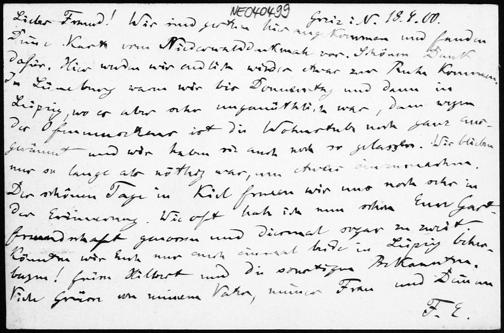 NE040499
Greiz i. V. 18.4.00.
Lieber Freund! Wir sind gestern hier angekommen und fanden
Deine Karte vom Niederwalddenkmal vor. Schönen Dank
dafür. Hier werden wir endlich wieder etwas zur Ruhe kommen.
In Lüneburg waren wir bis Donnerstag und dann in
Leipzig, wo es aber sehr ungemütlich war, denn wegen
der ist die Wohnstube noch ganz aus-
geräumt und wir haben sie auch noch so gelassen. Wir blieben
nur so lange als nöthig war, um etwas
Der schönen Tage in Kiel freuen wir uns noch sehr in
der Erinnerung. Wie oft habe ich nun schon Eure Gast
freundschaft genossen und diesmal sogar zu zweit
Könnten wir Euch nur auch einmal beide in Leipzig
Grüsse und die sonstigen Bekannten.
Viele Grüsse von meinem Vater, meiner Frau und Deinem
F. E.